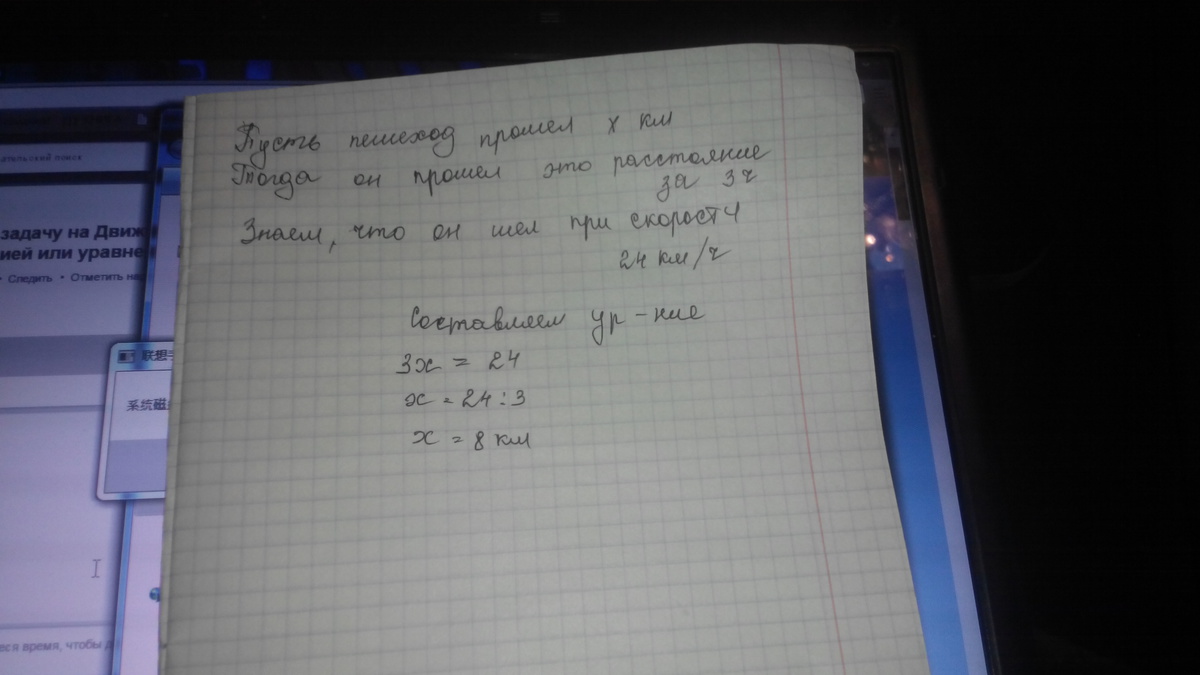 Пусть пешеход прошел х км
Тогда он прошел это расстояние
за 3ч
Знаем, что он шел при скорости
24 км/ч
Составляем ур-ние
3x = 24
x = 24:3
x = 8 км
дательский поиск
задачу на Движ
ией или уравне
• Следить • Отметить на
联想
系统磁
еся время, чтобы д